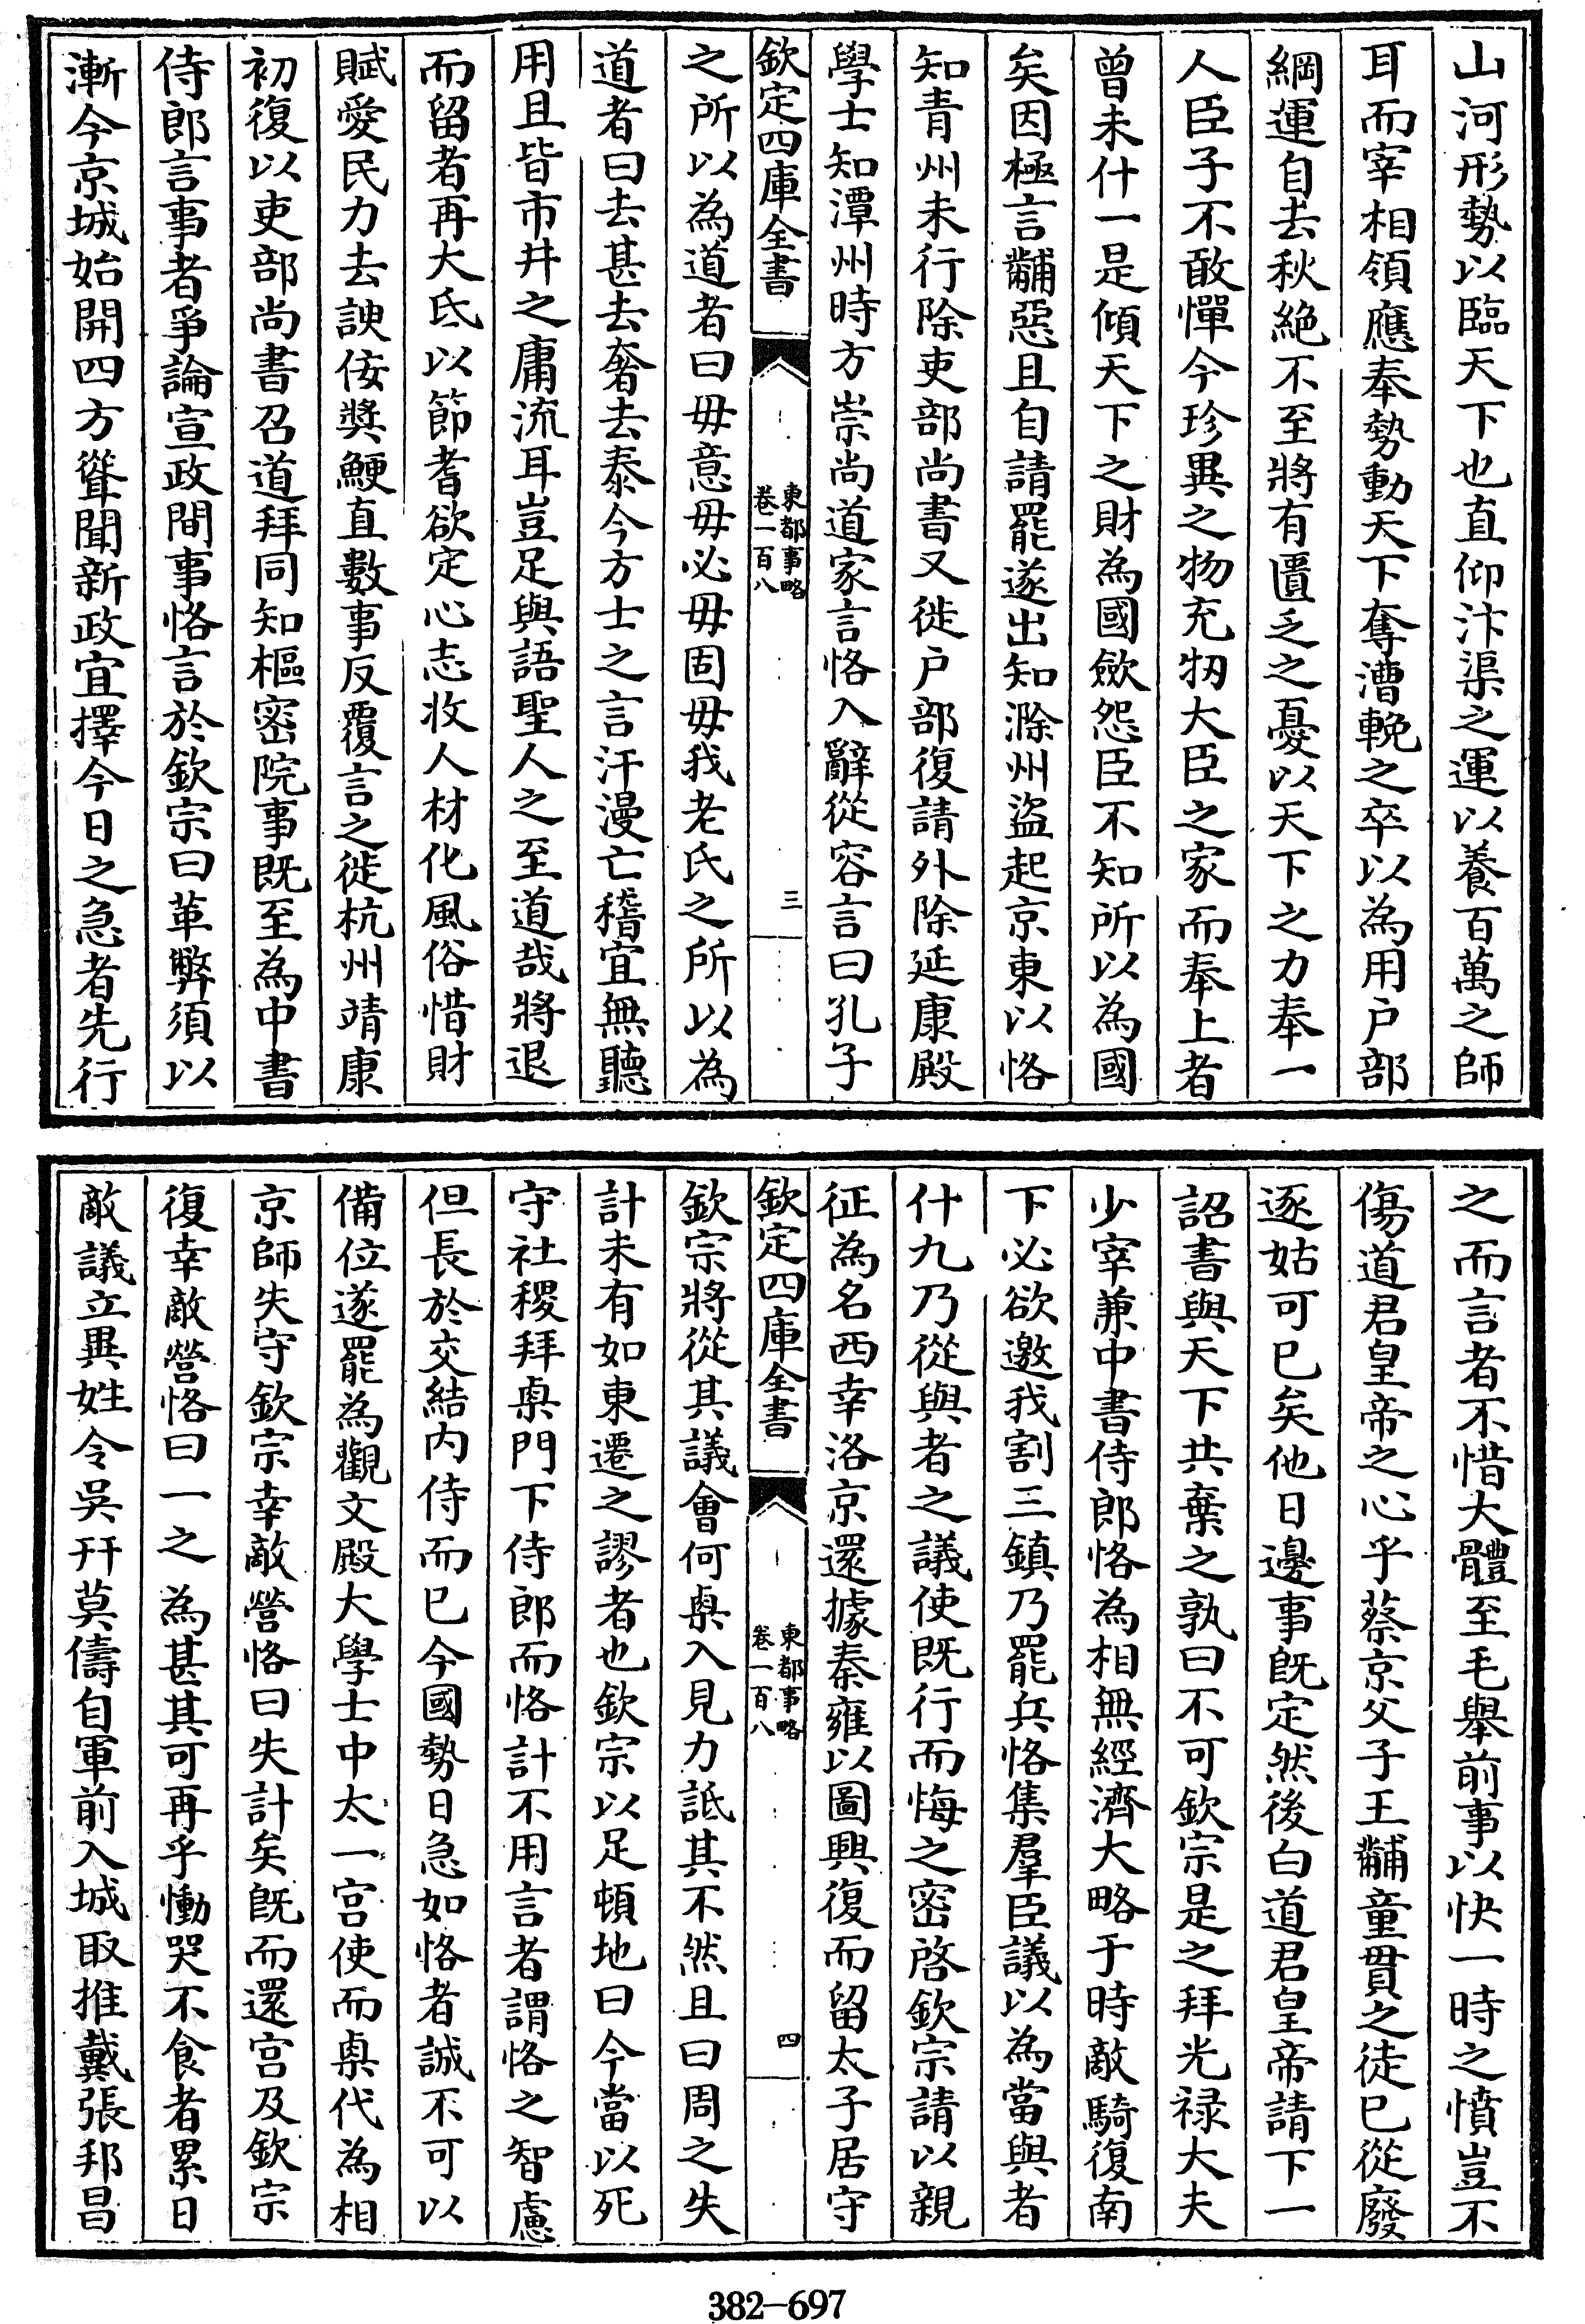 山河形勢以臨天下也直仰汴渠之運以養百萬之師
耳而宰相領應奉勢動天下奪漕輓之卒以為用户部
綱運自去秋絶不至將有匱乏之憂以天下之力奉一
人臣子不敢憚今珍異之物充牣大臣之家而奉上者
曾未什一是傾天下之財為國歛怨臣不知所以為國
矣因極言黼惡且自請罷遂出知滁州盜起京東以恪
知青州未行除吏部尚書又徙户部復請外除延康殿
學士知潭州時方崇尚道家言恪入辭從容言曰孔子
欽定四庫全書
東都事略
卷一百八
三
之所以為道者曰毋意毋必毋固毋我老氏之所以為
道者曰去甚去奢去泰今方士之言汗漫亡稽宜無聽
用且皆市井之庸流耳豈足與語聖人之至道哉將退
而留者再大氐以節耆欲定心志收人材化風俗惜財
賦愛民力去諛佞奬鯁直數事反覆言之徙杭州靖康
初復以吏部尚書召道拜同知樞密院事既至為中書
侍郎言事者爭論宣政間事恪言於欽宗曰革弊須以
漸今京城始開四方聳聞新政宜擇今日之急者先行
之而言者不惜大體至毛舉前事以快一時之憤豈不
傷道君皇帝之心乎蔡京父子王黼童貫之徒已從廢
逐姑可已矣他日邊事既定然後白道君皇帝請下一
詔書與天下共棄之孰曰不可欽宗是之拜光禄大夫
少宰兼中書侍郎恪為相無經濟大略于時敵騎復南
下必欲邀我割三鎮乃罷兵恪集羣臣議以為當與者
什九乃從與者之議使既行而悔之密啓欽宗請以親
征為名西幸洛京還據秦雍以圖興復而留太子居守
欽定四庫全書
東都事略
卷一百八
四
欽宗將從其議會何㮚入見力詆其不然且曰周之失
計未有如東遷之謬者也欽宗以足頓地曰今當以死
守社稷拜㮚門下侍郎而恪計不用言者謂恪之智慮
但長於交結内侍而已今國勢日急如恪者誠不可以
備位遂罷為觀文殿大學士中太一宫使而㮚代為相
京師失守欽宗幸敵營恪曰失計矣既而還宫及欽宗
復幸敵營恪曰一之為甚其可再乎慟哭不食者累日
敵議立異姓令吳幵莫儔自軍前入城取推戴張邦昌
382-697